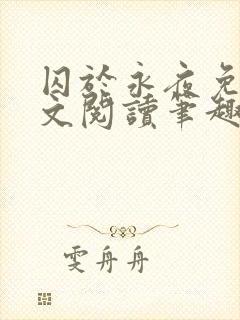 囚於永夜免
文閱讀筆趣
雯舟舟